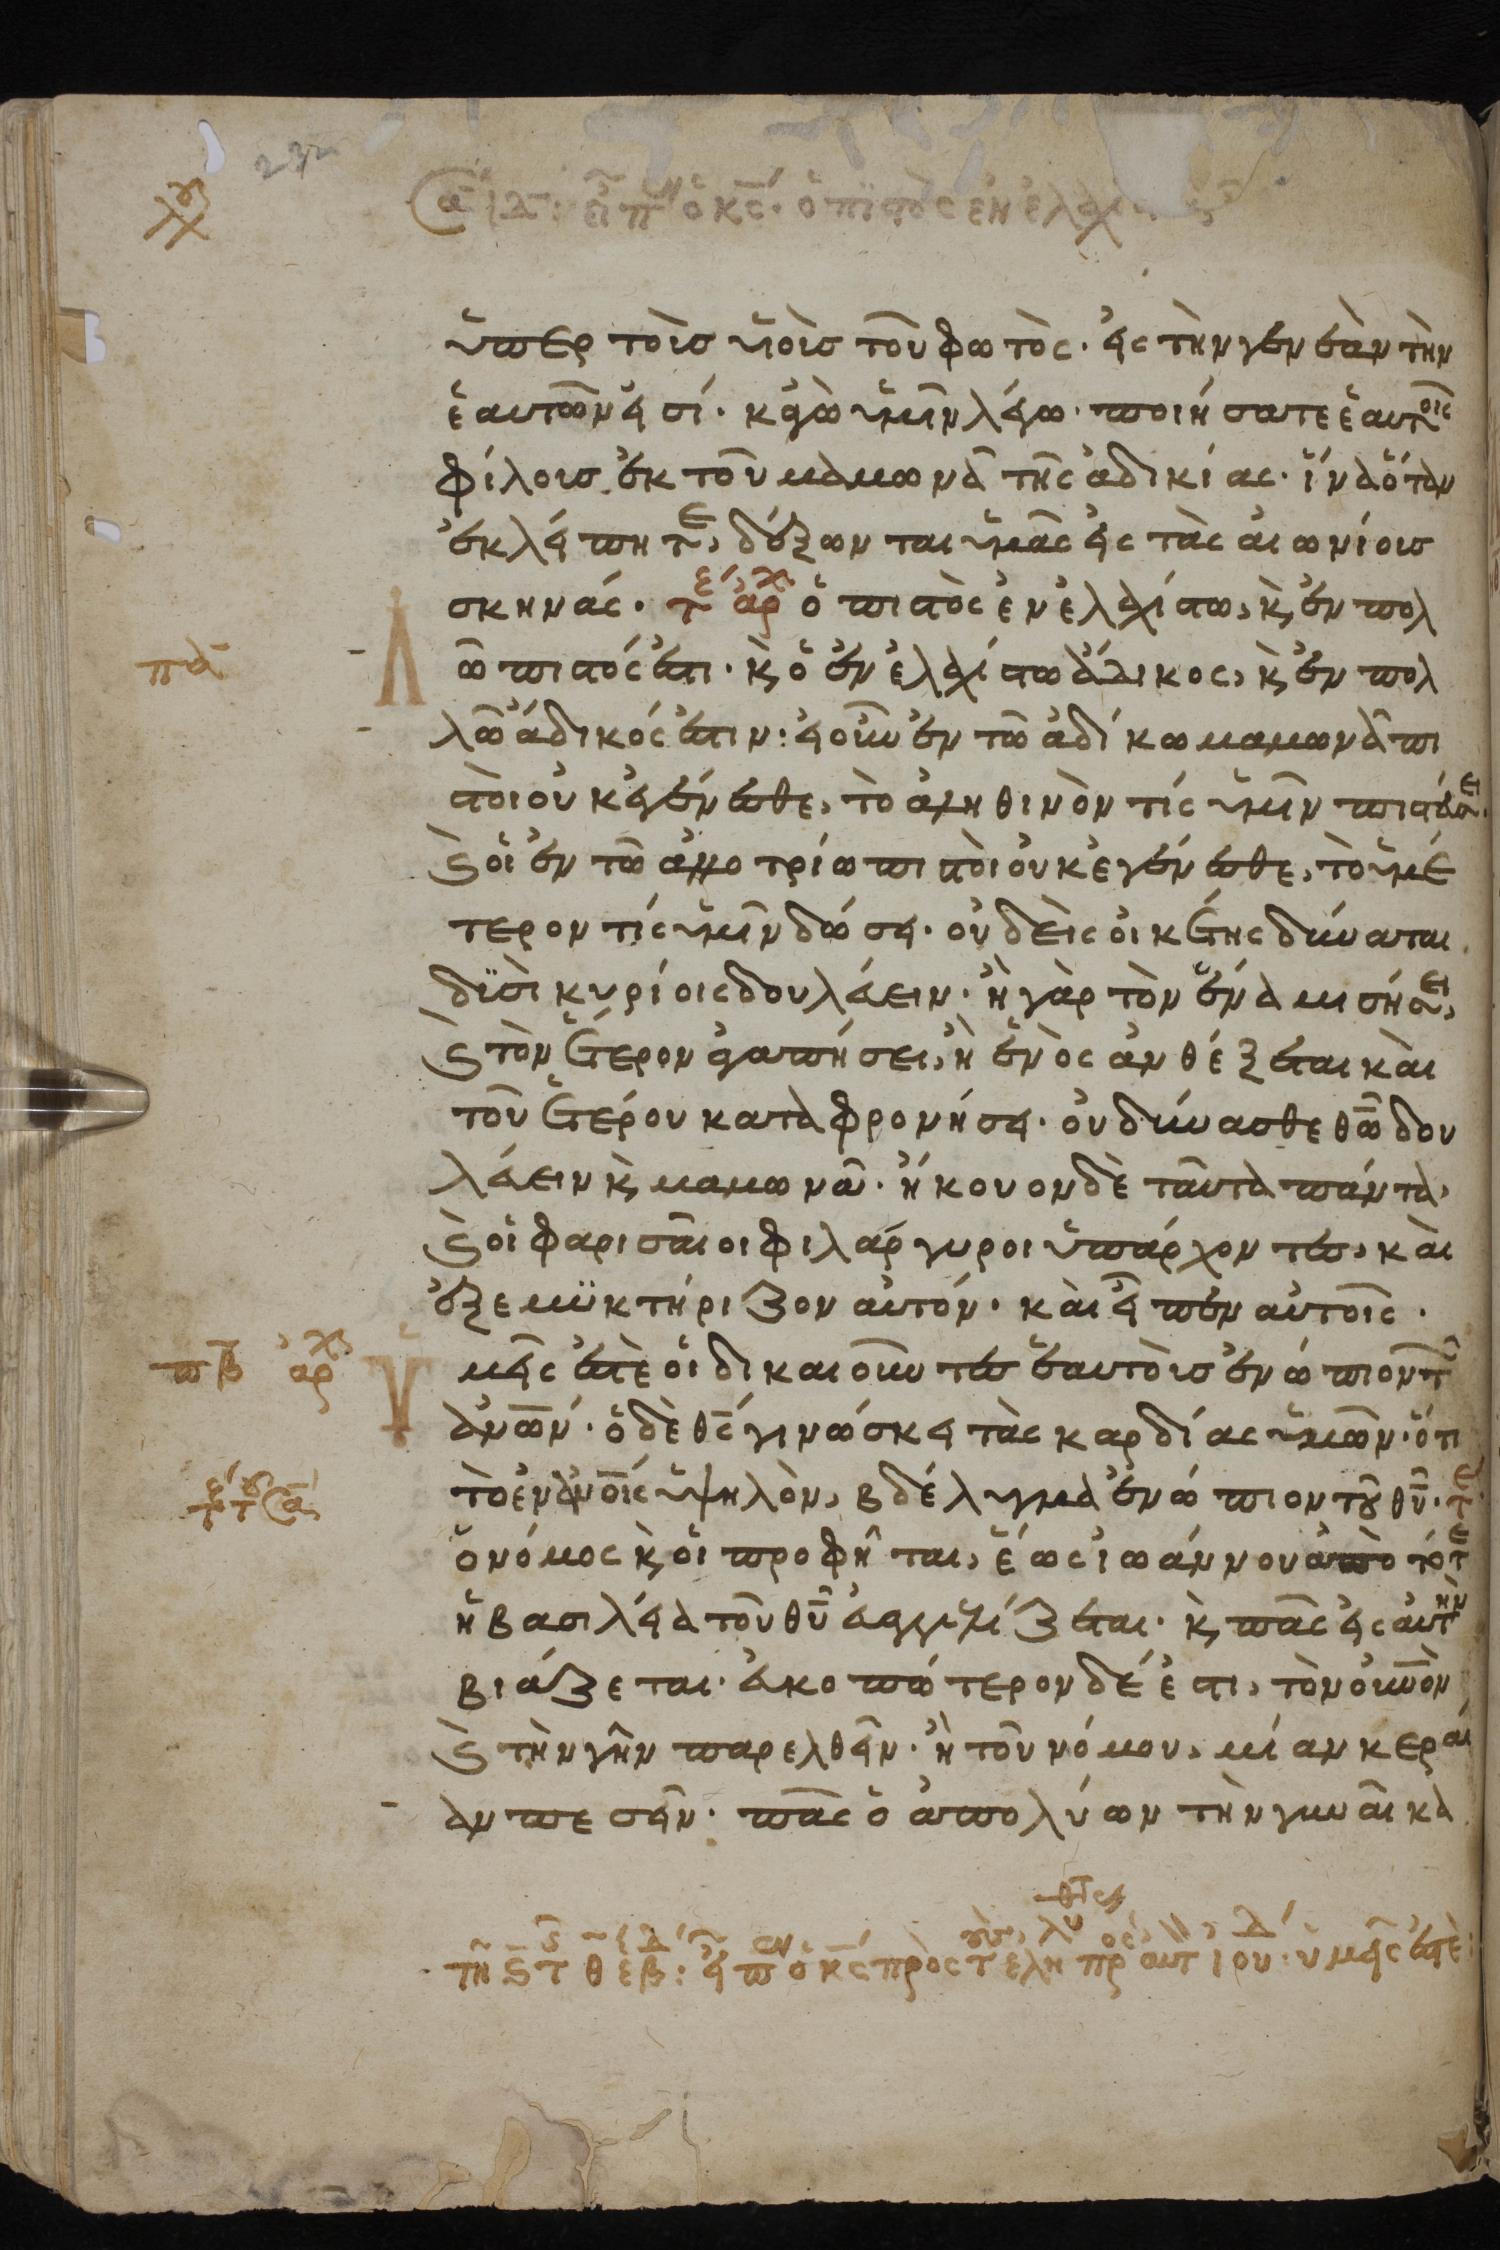 232
ὑπερ τοῖσ υἱοῖσ τοῦ φωτὸς· εἰς τὴν γενεὰν τὴν
ἑαυτῶν εἰσί· κἀγὼ ὑμῖν λέγω· ποιήσατε ἑαυτοῖς
φίλουσ ἐκ τοῦ μαμωνᾶ τῆς ἀδικίας· ἵνα ὅταν
ἐκλείπητε, δέξωνται ὑμᾶς εἰς τὰς αἰωνίουσ
σκηνάς· τε αρχ ὁ πιστὸς ἐν ἐλαχίστω, κ ἐν πολ
πα ῶ πιστός ἐστι· κ ὁ ἐν ἐλαχίστω ἄδικος, κ ἐν πολ
λῶ ἄδικός ἐστιν: εἰ οὖν ἐν τῶ ἀδίκω μαμωνᾶ πι
στοὶ οὐκ ἐγένεσθε, τὸ ἀληθινὸν τίς ὑμῖν πιστεύσει·
κ εἰ ἐν τῶ ἀλλοτρίω πιστοὶ οὐκ ἐγένεσθε, τὸ ὑμέ
τερον τίς ὑμῖν δώσει· οὐδεὶς οἰκέτης δύναται
δϋσὶ κυρίοις δουλεύειν· ἢ γὰρ τὸν ἕνα μισήσει,
κ τὸν ἕτερον ἀγαπήσει, ἢ ἑνὸς ἀνθέξεται καὶ
τοῦ ἑτέρου καταφρονήσει· οὐ δύνασθε θῶ δου
λεύειν κ μαμωνᾶ· ἤκουον δὲ ταῦτα πάντα,
κ οἱ φαρισαῖοι φιλάργυροι ὑπάρχοντεσ, καὶ
ἐξεμϋκτήριζον αὐτόν· καὶ εἶπεν αὐτοῖς·
πβ αρχ Ὑμεῖς ἐστὲ οἱ δικαιοῦντεσ ἑαυτοὺσ ἐνώπιον τῶν
ἀνῶν· ὁ δὲ θς γινώσκει τὰς καρδίας ὑμῶν· ὅτι
τὸ ἐν ἀνοῖς ὑψηλὸν, βδέλυγμα ἐνώπιον τοῦ θῦ· τε
ὁ νόμος κ οἱ προφῆται, ἕως ἰωάννου ἀπὸ τότε
ἡ βασιλεία τοῦ θῦ εὐαγγελίζεται· κ πᾶς εἰς αὐτὴν
βιάζεται· εὐκοπώτερον δέ ἐστι, τὸν οὐνὸν
κ τὴν γῆν παρελθεῖν· ἢ τοῦ νόμου, μίαν κεραί
αν πεσεῖν· πᾶς ὁ ἀπολύων τὴν γυναῖκα